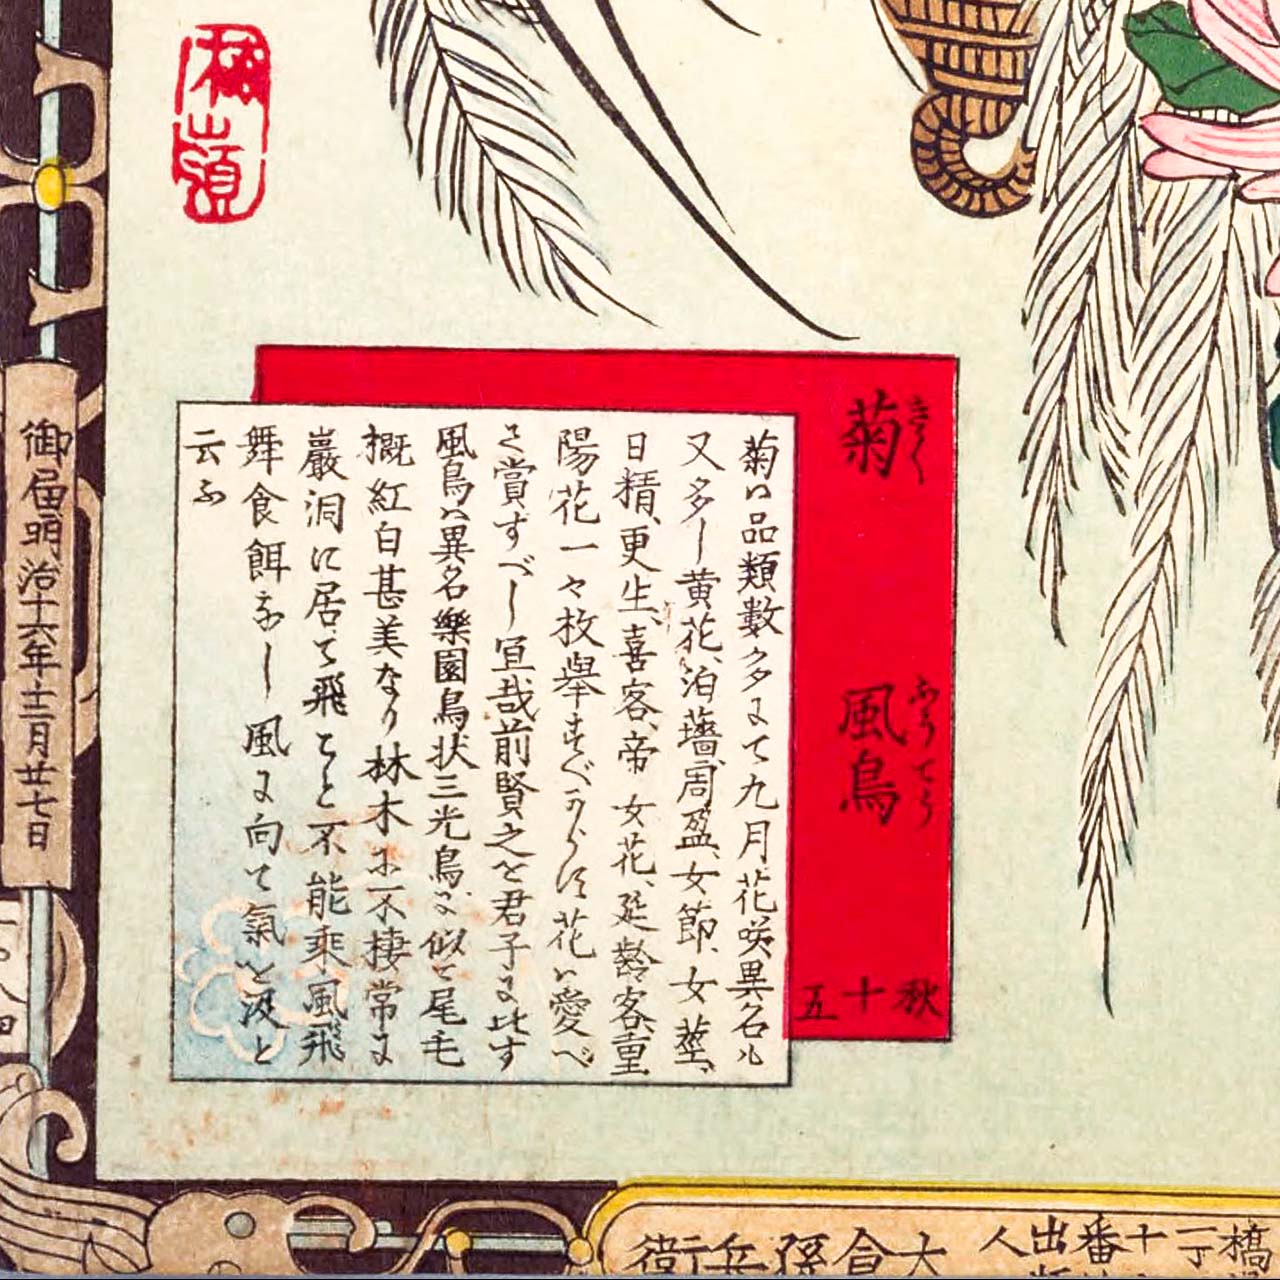 菊 きく
風鳥 ふうてう
秋十五
菊ハ品類数多にて九月花咲異名ル
又多し黄花、泊薔、周盈、女節、女莖、
日精、更生、喜客、帝女花、延齢客、重
陽花一々枚挙すべからず花ハ愛べ
く賞すべし宜哉前賢之を君子に比す
風鳥ハ異名樂園鳥状三光鳥に似て尾毛
概紅白甚美なり林木に不棲常に
巖洞に居て飛こと不能乘風飛
舞食餌なし風に向て氣を汲と
云ふ
楳嶺
御届明治十六年十二月廿七日
橋
一丁
十番
出
人
大倉孫兵衛